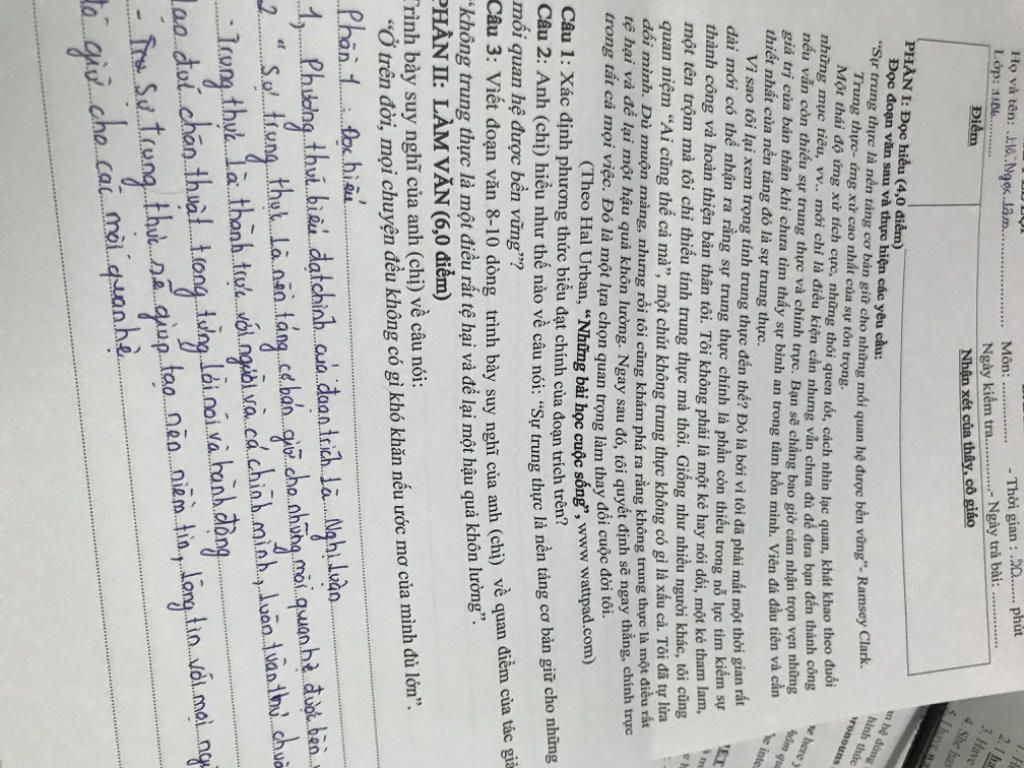 Họ và tên: Hồ Ngọc Lâm Môn: - Thời gian : 20 phút
Lớp: Ngày kiểm tra - Ngày trả bài:
Điểm Nhận xét của thầy, cô giáo
PHẦN I: Đọc hiểu (4,0 điểm)
Đọc đoạn văn sau và thực hiện các yêu cầu:
“Sự trung thực là nền tảng cơ bản giữ cho những mối quan hệ được bền vững”- Ramsey Clark.
Trung thực- ứng xử cao nhất của sự tôn trọng.
Một thái độ ứng xử tích cực, những thói quen tốt, cách nhìn lạc quan, khát khao theo đuổi
những mục tiêu, vv.. mới chỉ là điều kiện cần nhưng vẫn chưa đủ để đưa bạn đến thành công
nếu vẫn còn thiếu sự trung thực và chính trực. Bạn sẽ chẳng bao giờ cảm nhận trọn vẹn những
giá trị của bản thân khi chưa tìm thấy sự bình an trong tâm hồn mình. Viên đá đầu tiên và cần
thiết nhất của nền tảng đó là sự trung thực.
Vì sao tôi lại xem trọng tính trung thực đến thế? Đó là bởi vì tôi đã phải mất một thời gian rất
dài mới có thể nhận ra rằng sự trung thực chính là phần còn thiếu trong nỗ lực tìm kiếm sự
thành công và hoàn thiện bản thân tôi. Tôi không phải là một kẻ hay nói dối, một kẻ tham lam,
một tên trộm mà tôi chỉ thiếu tính trung thực mà thôi. Giống như nhiều người khác, tôi cũng
quan niệm “Ai cũng thế cả mà”, một chút không trung thực không có gì là xấu cả. Tôi đã tự lừa
dối mình. Dù muộn màng, nhưng rồi tôi cũng khám phá ra rằng không trung thực là một điều rất
tệ hại và để lại một hậu quả khôn lường. Ngay sau đó, tôi quyết định sẽ ngay thẳng, chính trực
trong tất cả mọi việc. Đó là một lựa chọn quan trọng làm thay đổi cuộc đời tôi.
(Theo Hal Urban, “Những bài học cuộc sống”, www wattpad.com)
Câu 1: Xác định phương thức biểu đạt chính của đoạn trích trên?
Câu 2: Anh (chị) hiểu như thế nào về câu nói: “Sự trung thực là nền tảng cơ bản giữ cho những
mối quan hệ được bền vững”?
Câu 3: Viết đoạn văn 8-10 dòng trình bày suy nghĩ của anh (chị) về quan điểm của tác giả
“không trung thực là một điều rất tệ hại và để lại một hậu quả khôn lường”.
PHẦN II: LÀM VĂN (6,0 điểm)
Trình bày suy nghĩ của anh (chị) về câu nói:
“Ở trên đời, mọi chuyện đều không có gì khó khăn nếu ước mơ của mình đủ lớn”.
Phần 1 : Đọc hiểu
1, Phương thức biểu đạt chính của đoạn trích là Nghị luận
2 “ Sự trung thực là nền tảng cơ bản giữ cho những mối quan hệ được bền
- Trung thực là thành trực với người và cả chính mình, luôn tuân thủ chuẩn
đạo đức chân thật trong từng lời nói và hành động
- Sự trung thực sẽ giúp tạo nên niềm tin, lòng tin với mọi
giữ cho các mối quan hệ